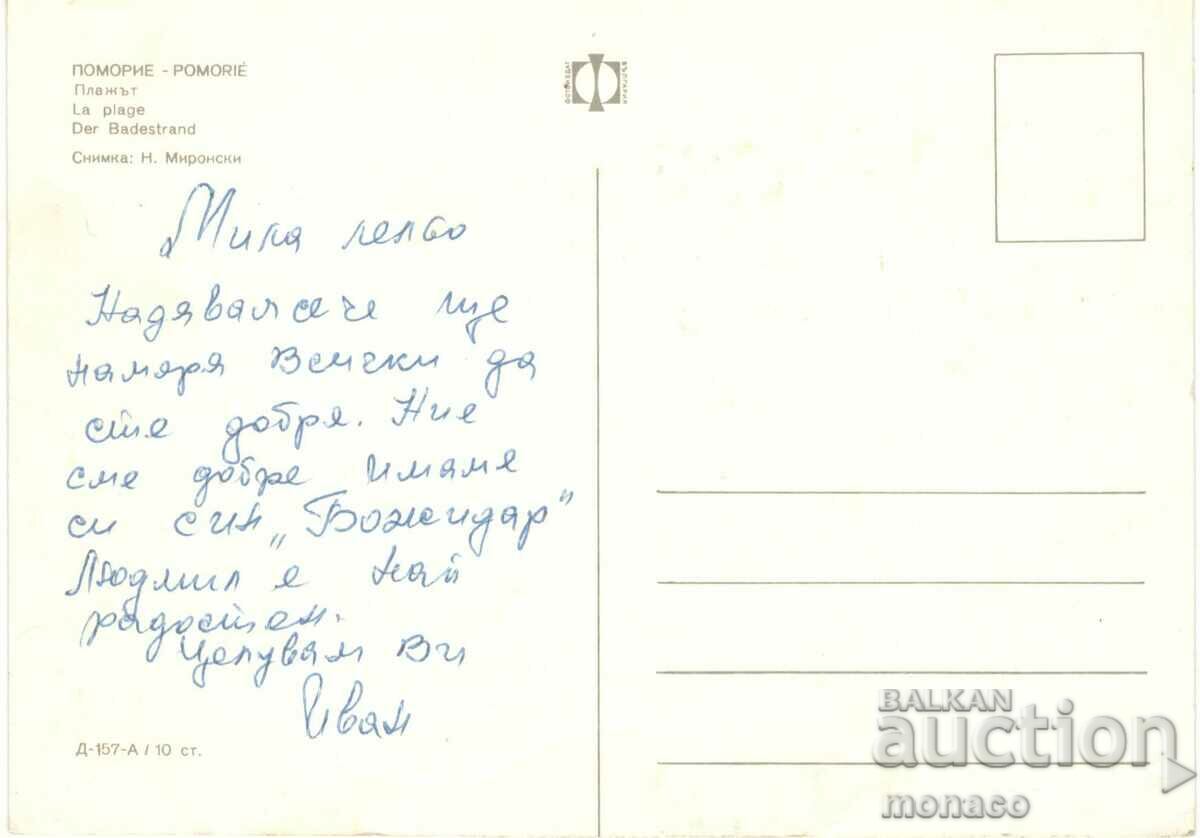 ПОМОРИЕ - POMORIÉ
Плажът
La plage
Der Badestrand
Снимка: Н. Миронски
ФОТОИЗДАТ
БЪЛГАРИЯ
Мила лельо
Надявам се че ще
намеря всички да
сте добре. Ние
сме добре имаме
си син „Божидар"
Людмил е най
радостен.
Целувам Ви
Иван
Д-157-А / 10 ст.
BALKAN
auction
monaco